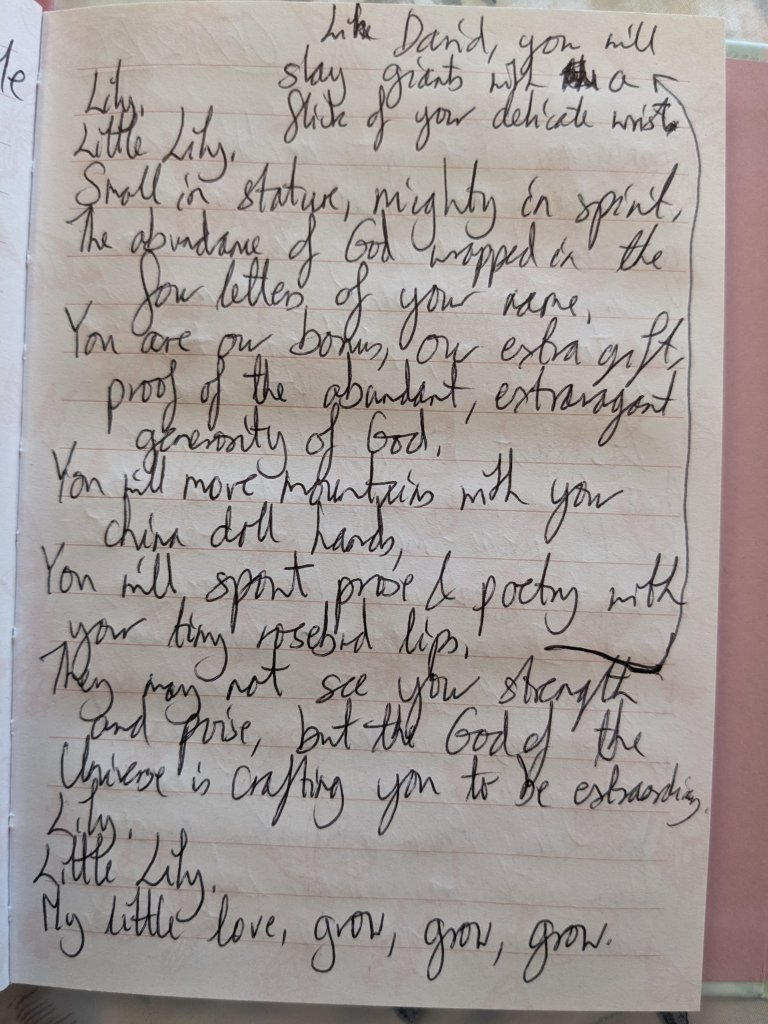 Like David, you will
slay giants with a
flick of your delicate wrist.
Lily.
Little Lily.
Small in stature, mighty in spirit,
The abundance of God wrapped in the
four letters of your name.
You are our bonus, our extra gift,
proof of the abundant, extravagant
generosity of God.
You will move mountains with your
china doll hands,
You will spout prose & poetry with
your tiny rosebud lips.
They may not see your strength
and poise, but the God of the
Universe is crafting you to be extraordinary.
Lily.
Little Lily.
My little love, grow, grow, grow.